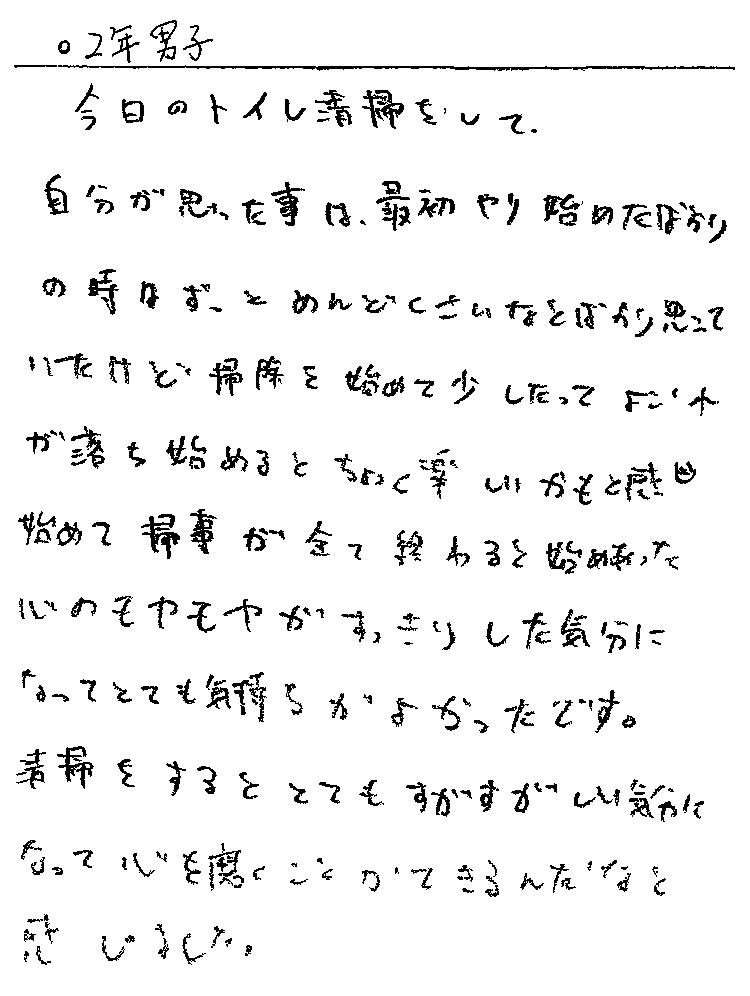 ○2年男子
今日のトイレ清掃をして、
自分が思った事は、最初やり始めたばかり
の時はずっとめんどくさいなとばかり思って
いたけど掃除を始めて少ししたってよごれ
が落ち始めるとちょっと楽しいかもと感じ
始めて掃事が全て終わると始め
心のモヤモヤがすっきりした気分に
なってとても気持ちがよかったです。
清掃をするととてもすがすがしい気分に
なって心を磨くことができるんだなと
感じました。